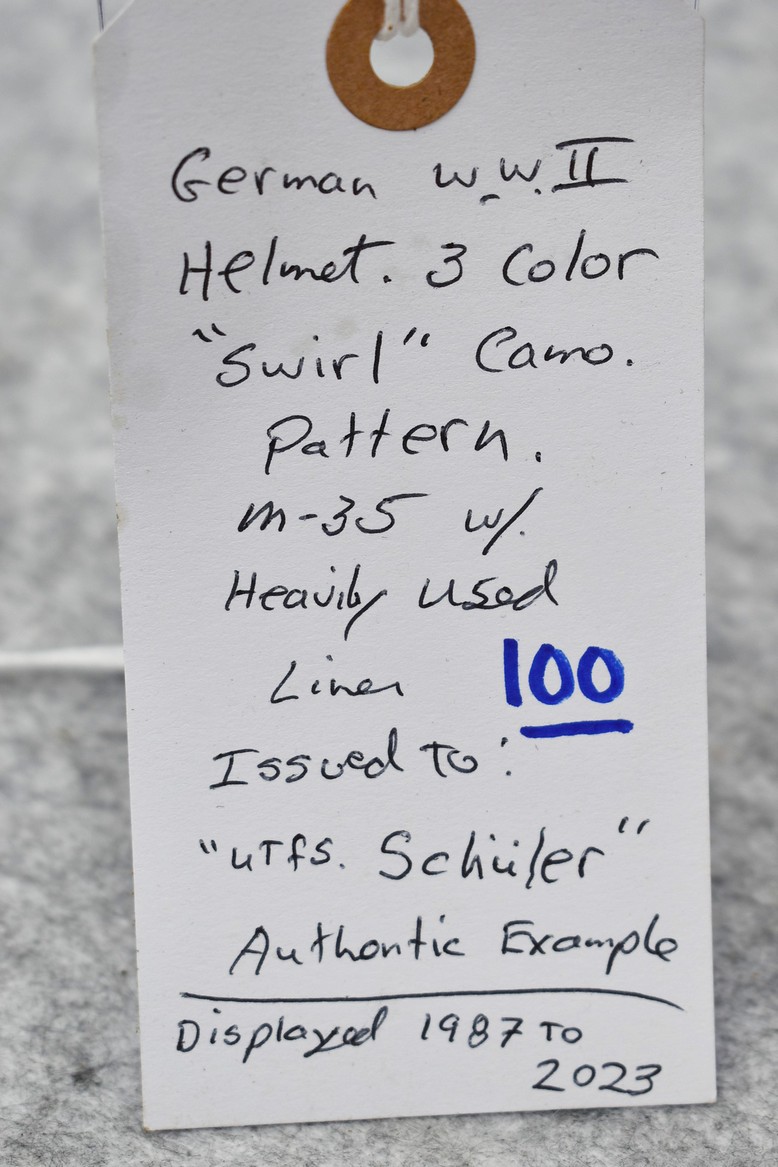 German W.W. II
Helmet. 3 Color
"Swirl" Camo.
Pattern.
M-35 w/.
Heavily Used
Liner 100
Issued To:
"UTFS. Schüler"
Authontic Example
Displayed 1987 TO
2023